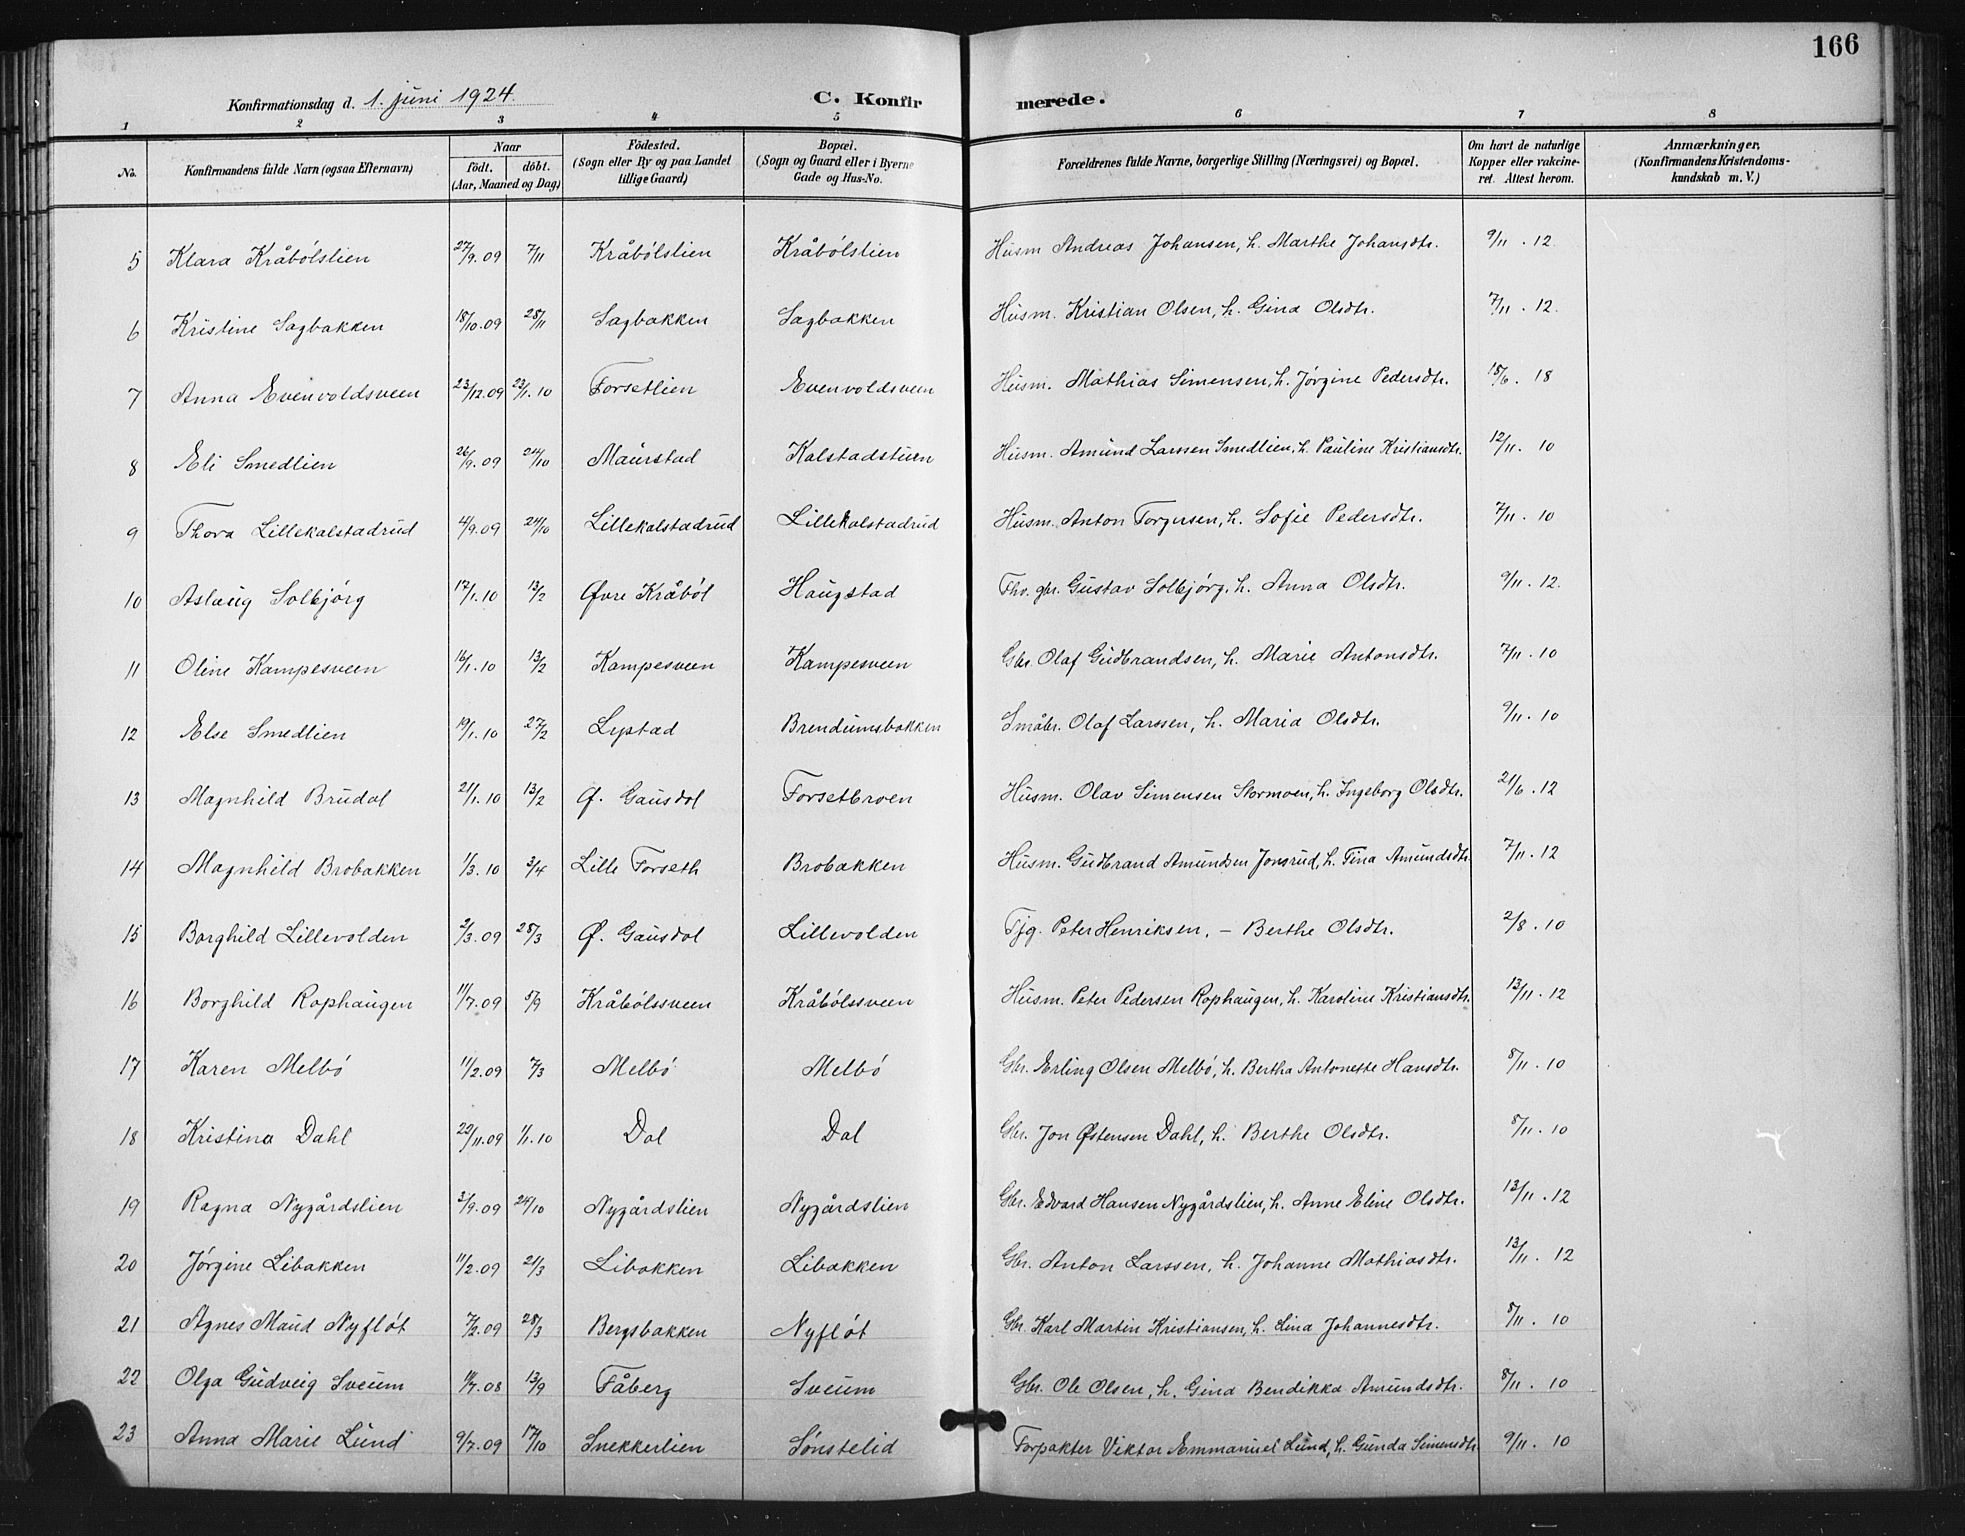 166
Konfirmationsdag d. 1. juni 1924. C. Konfirmerede.
1 2 3 4 5 6 7 8
No. Konfirmandens fulde Navn (ogsaa Efternavn) Naar födt. döbt. (Aar, Maaned og Dag) Födested. (Sogn eller By og paa Landet tillige Gaard) Bopæl. (Sogn og Gaard eller i Byerne Gade og Hus-No. Forældrenes fulde Navne, borgerlige Stilling (Næringsvei) og Bopæl. Om havt de naturlige Kopper eller vakcineret. Attest herom. Anmærkninger. (Konfirmandens Kristendomskundskab m. V.)
5 Klara Kråbólslien 27/9.09 7/11 Kråbólslien Kråbólslien Husm Andreas Johansen, h. Marthe Johansdtr. 9/11.12.
6 Kristine Sagbakken 18/10.09 28/11 Sagbakken Sagbakken Husm. Kristian Olsen, h. Gina Olsdtr. 7/11.12.
7 Anna Evenvoldsveen 23/12.09 23/1.10 Forsetlien Evenvoldsveen Husm. Mathias Simensen, h. Jørgine Pedersdtr. 18/6.18
8 Eli Smedlien 26/9.09 24/10 Maurstad Kalstadstuen Husm. Amund Larssen Smedlien, h. Pauline Kristiansdtr. 12/11.10
9 Thora Lillekalstadrud 4/9.09 24/10 Lillekalstadrud Lillekalstadrud Husm. Anton Torgersen, h. Sofie Pedersdtr. 7/11.10
10 Aslaug Solbjórg 17/1.10 13/2 Øvre Kråból Haugstad Fhv. gbr. Gustav Solbjørg, h. Anna Olsdtr. 9/11.12.
11 Oline Kampesveen 16/1.10 13/2 Kampesveen Kampesveen Gbr. Olaf Gudbrandsen, h. Marie Antonsdtr. 7/11.10
12 Else Smedlien 19/1.10 27/2 Lystad Brendumsbakken Småbr. Olaf Larssen, h. Maria Olsdtr. 9/11.10
13 Magnhild Brudal 21/1.10 13/2 Ø. Gausdal Forsetbroen Husm. Olav Simensen Stormoen, h. Ingeborg Olsdtr. 21/6.12
14 Magnhild Brobakken 1/3.10 3/4 Lille Forseth Brobakken Husm. Gudbrand Amundsen Jonsrud, h. Tina Amundsdtr. 7/11.12
15 Borghild Lillevolden 2/3.09 28/3 Ø. Gausdal Lillevolden Tjg. Peter Henriksen, - Berthe Olsdtr. 2/8.10
16 Borghild Rophaugen 11/7.09 5/9 Kråbólssveen Kråbólssveen Husm. Peter Pedersen Rophaugen, h. Karoline Kristiansdtr. 13/11.12
17 Karen Melbó 11/2.09 7/3 Melbó Melbó Gbr. Erling Olsen Melbó, h. Bertha Antonette Hansdtr. 8/11.10
18 Kristina Dahl 22/11.09 1/1.10 Dal Dal Gbr. Jon Østensen Dahl, h. Berthe Olsdtr. 8/11.10
19 Ragna Nygårdslien 3/9.09 24/10 Nygårdslien Nygårdslien Gbr. Edvard Hansen Nygårdslien, h. Anne Eline Olsdtr. 13/11.12
20 Jørgine Libakken 11/2.09 21/3 Libakken Libakken Gbr. Anton Larssen, h. Johanne Mathiasdtr. 13/11.12
21 Agnes Maud Nyflót 7/2.09 28/3 Bergsbakken Nyflót Gbr. Karl Martin Kristiansen, h. Lina Johannesdtr. 8/11.10
22 Olga Gudveig Sveum 11/7.08 13/9 Fåberg Sveum Gbr. Ole Olsen, h. Gina Bendikka Amundsdtr. 8/11.10
23 Anna Marie Lund 9/7.09 17/10 Snekkerlien Sónstelid Forpakter Viktor Emmanuel Lund, h. Gunda Simensdtr. 9/11.10